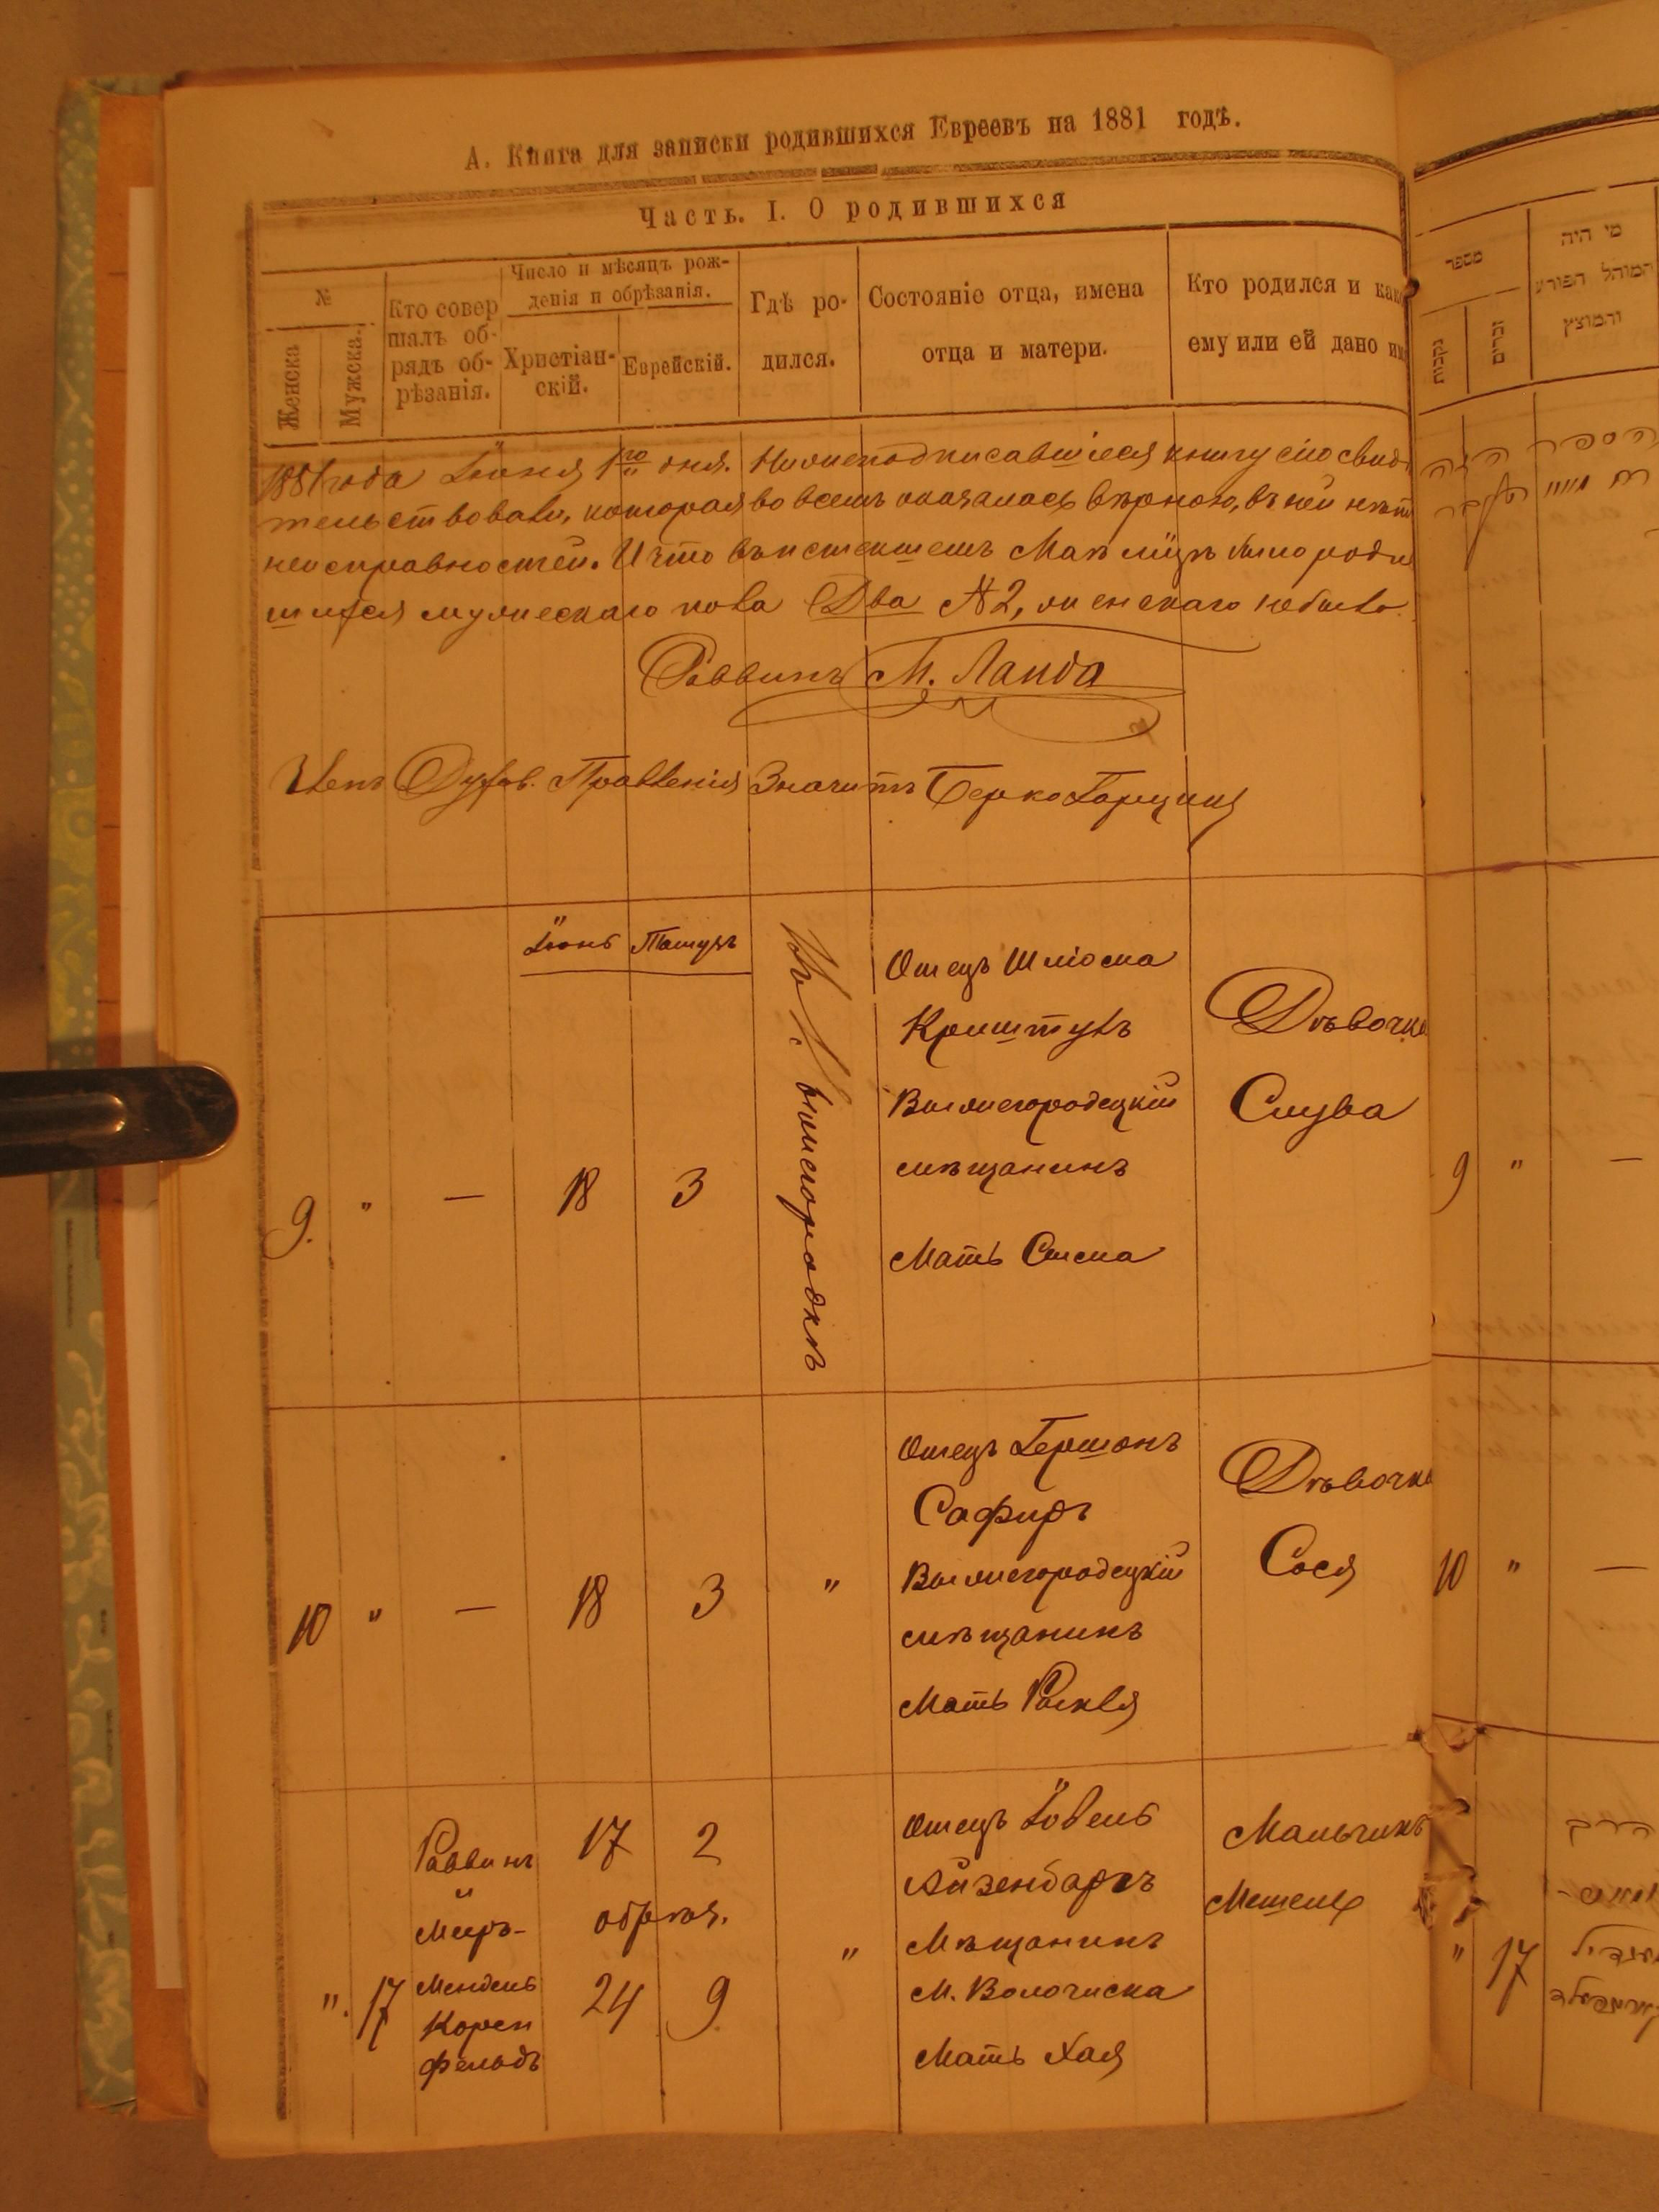 А. Книга для записки родившихся Евреевъ на 1881 годѣ.
Часть. I. О родившихся
№
Женска
Мужска.
Кто совер
шалъ об-
рядъ об-
рѣзанія.
Число и мѣсяцъ рож-
денія и обрѣзанія.
Христіан-
скій.
Еврейскій.
Гдѣ ро-
дился.
Состояніе отца, имена
отца и матери.
Кто родился и как
ему или ей дано им
1881 года Іюня 1го дня. Нижеподписавшіеся книгу сію свид
тельствовали, которая во всемъ оказалась вѣрною, въ ней нѣтъ
неисправностей. И что въ истекшемъ Маѣ мцѣ было роди
шихся мужескаго пола Два № 2, женскаго небыло.
Раввинъ М. Ланда
Членъ Духов. Правленія Значитъ Берко
Іюнь
Тамузъ
9.
"
—
18
3
Въ
Вышегородкѣ
Отецъ Шліома
Криштулъ
Вышегородецкій
мѣщанинъ
Мать Сима
Дѣвочка
Слува
10
"
—
18
3
"
Отецъ Гершонъ
Сафиръ
Вышегородецкій
мѣщанинъ
Мать Рыкля
Дѣвочка
Сося
".
17
Раввинъ
и
Меиръ-
Мендель
Корен
фельдъ
17
2
обрѣз.
24
9
"
Отецъ Іовель
Айзенбаргъ
Мѣщанинъ
М. Волочиска
Мать Хая
Мальчикъ
מספר
נקבות
זכרים
מי היה
המוהל הפורע
והמוצץ
9
"
—
10
"
—
"
17
הרב